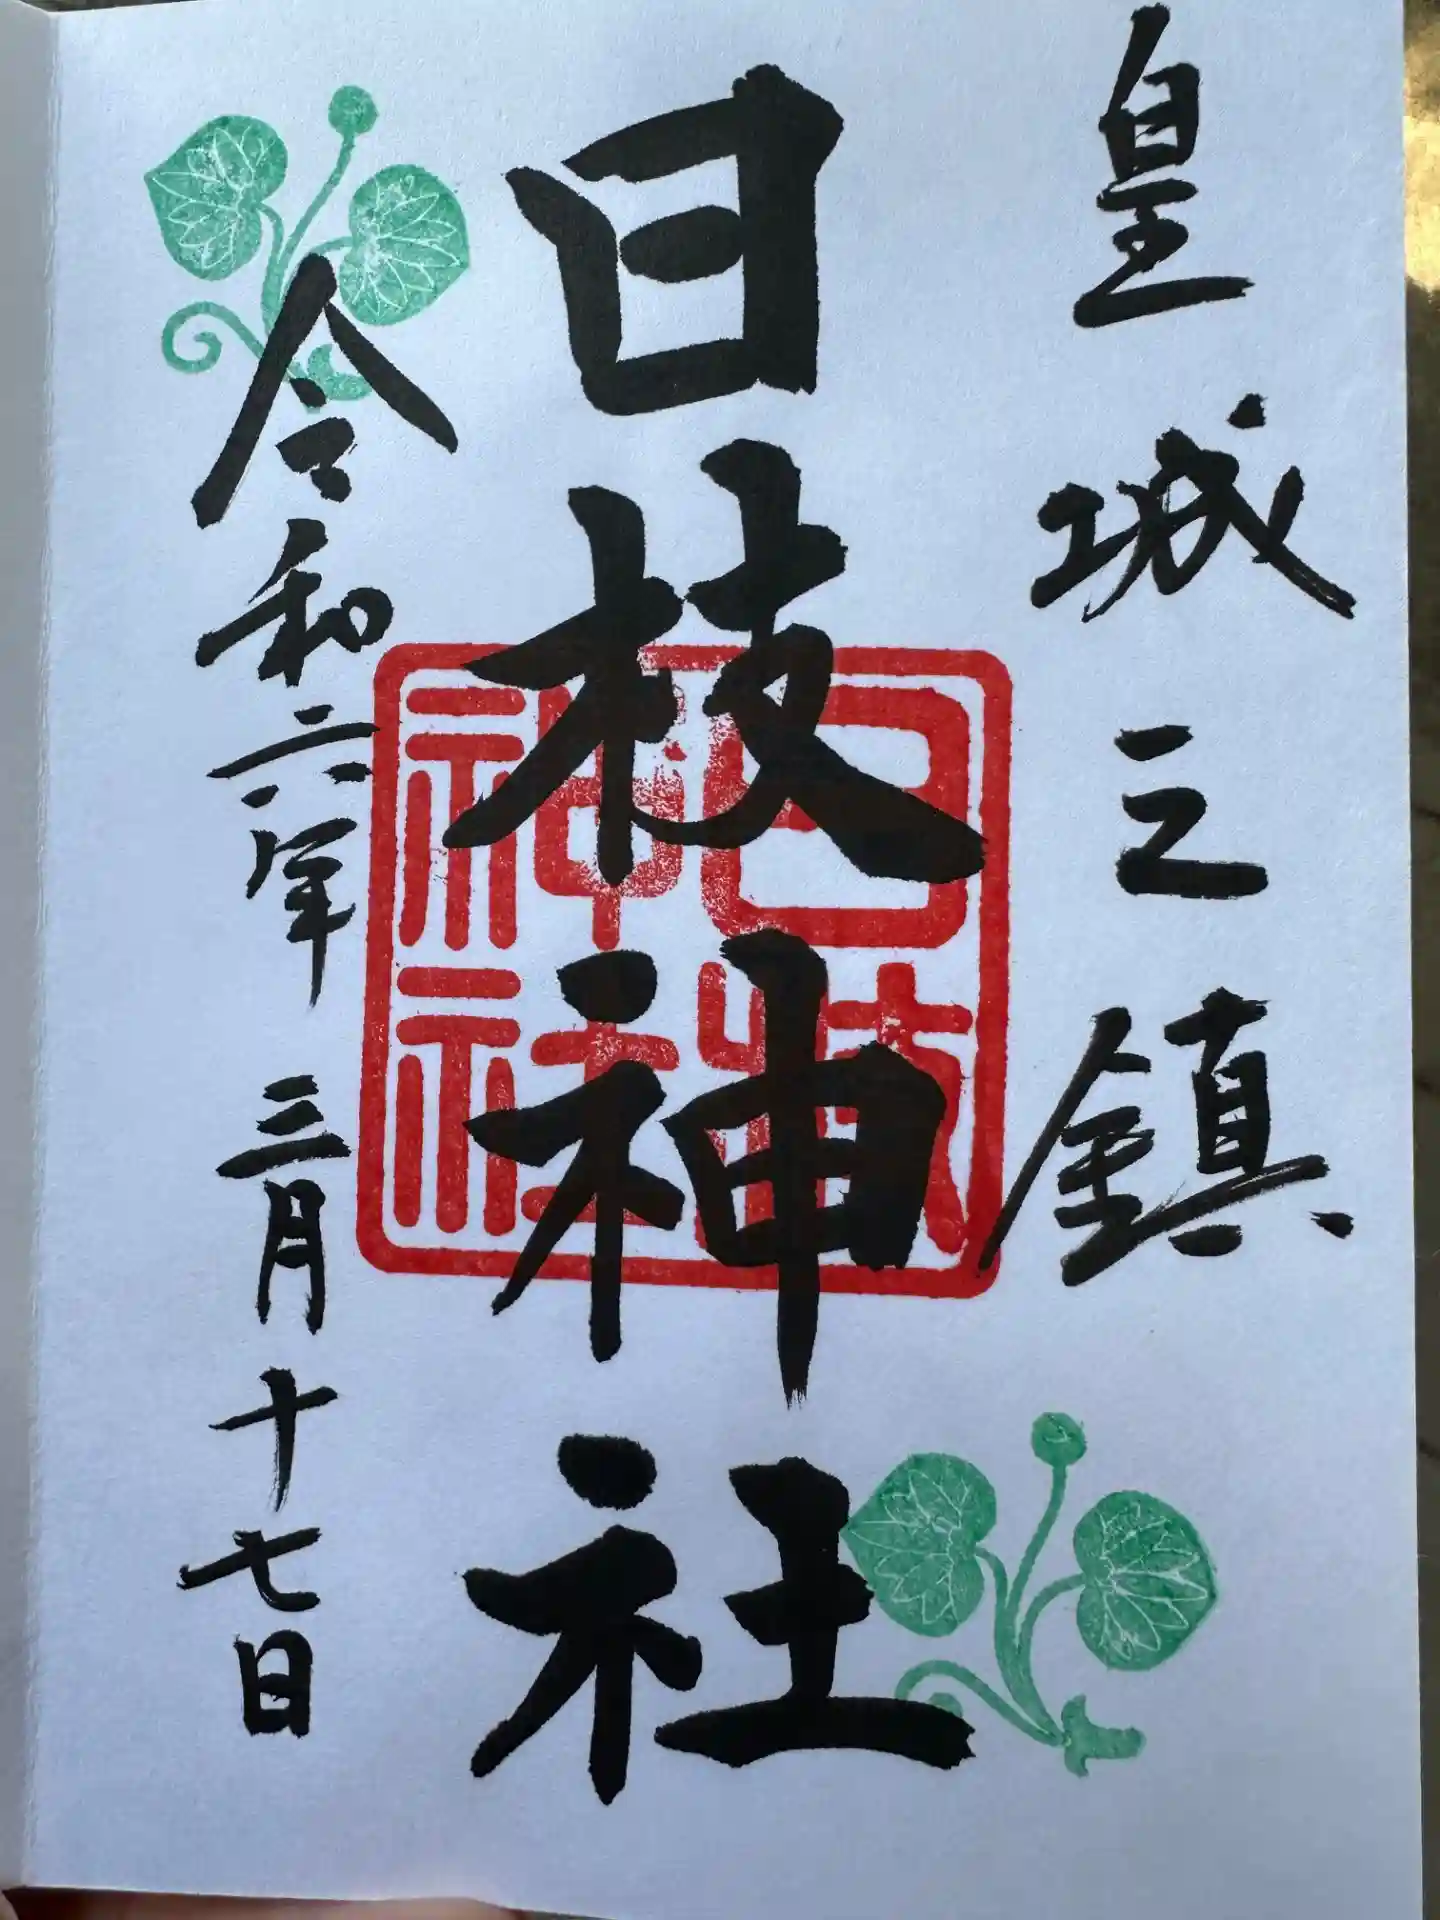 皇城之鎮
日枝神社
日枝
神社
令和六年三月十七日